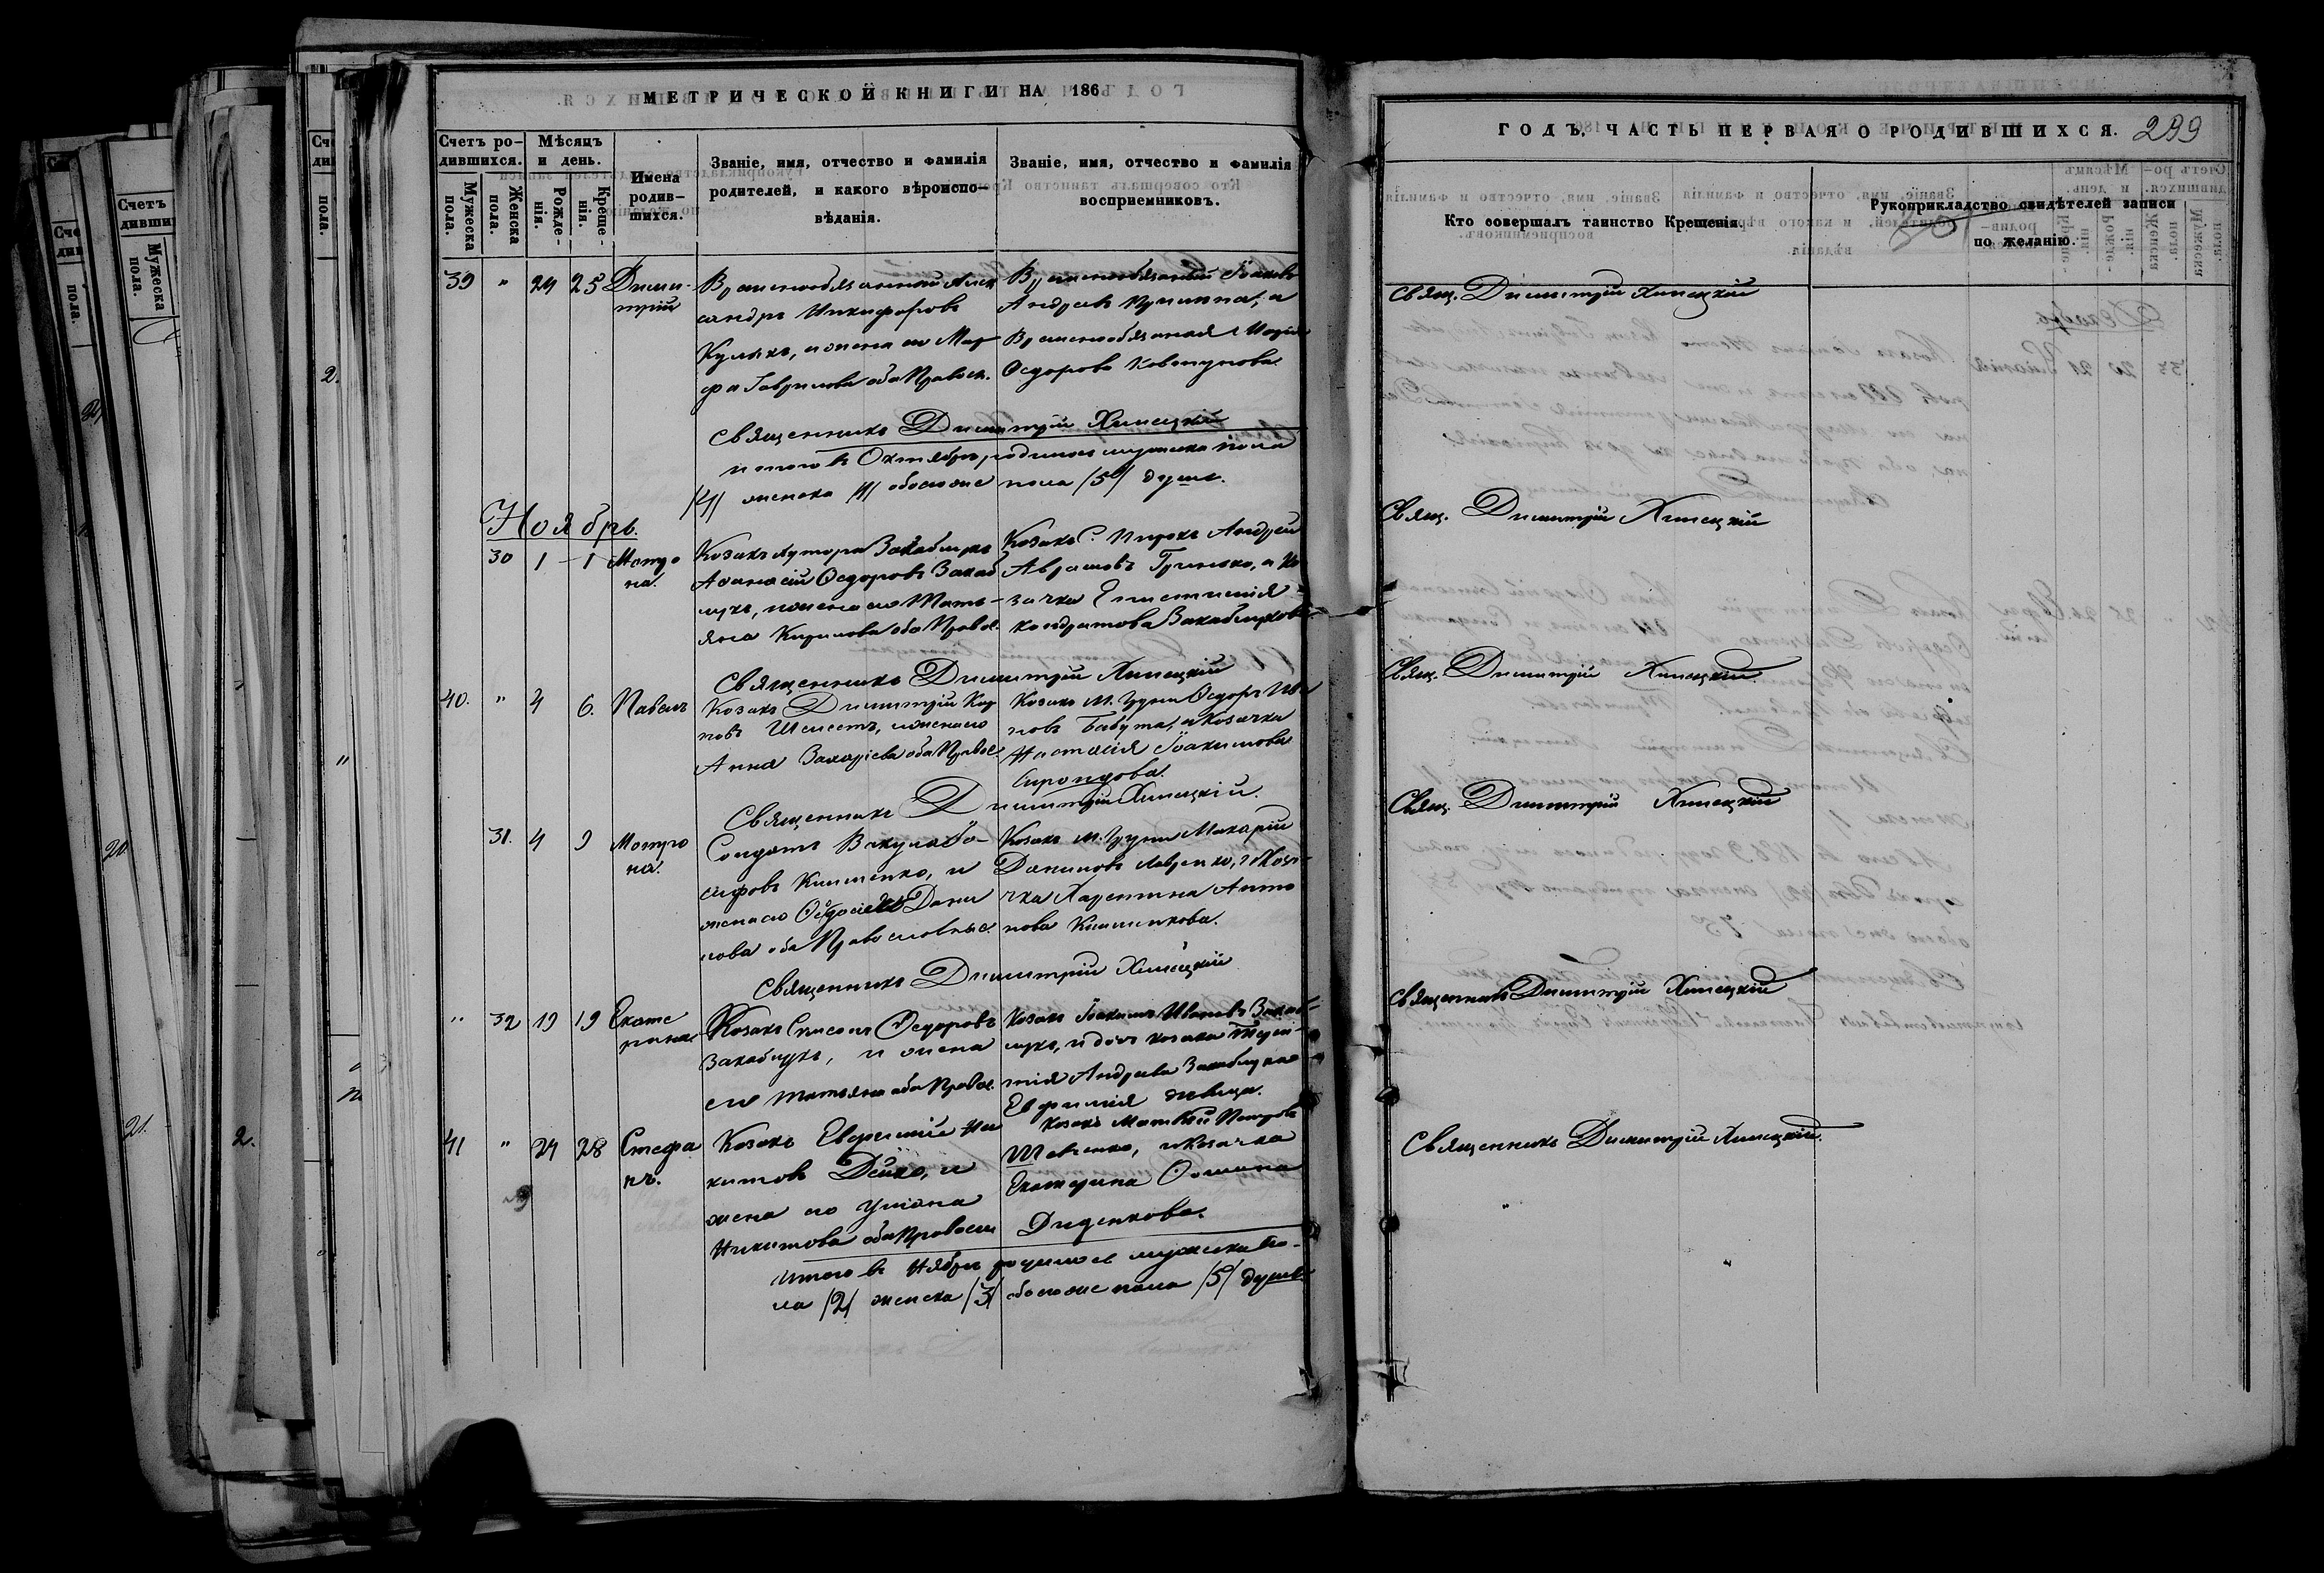 МЕТРИЧЕСКОЙ КНИГИ НА 186
Счетъ родившихся.
Мужеска пола.
Женска пола.
Мѣсяцъ и день.
Рожденія.
Крещенія.
Имена родившихся.
Званіе, имя, отчество и фамилія
родителей, и какого вѣроиспо-
вѣданія.
Званіе, имя, отчество и фамилія
восприемниковъ.
39 " 24 25 Дими-
трій
Временнообязанный Алек
сандръ Никифоровъ
Куликъ, и жена его Мар
фа Гаврилова оба Правосл.
Временнообязанный
Андреевъ и
Временнообязанная Марія
Ѳедорова Ковтунова
Священникъ Димитрій Хилецкій
итого въ Октябрѣ родилось мужеска пола
/4/ женска /1/ обоего же пола /5/ душъ.
Ноябрь.
30 1 1 Матро
на.
Козакъ хутора Закаблукъ
Аѳанасій Ѳедоровъ Закаб
лукъ, и жена его Тать-
яна Кирилова оба Правос.
Козакъ С. Пирокъ Андрей
Авраамовъ Гринько, и Ко
зачка Епистимія
Кондратова Закаблукова.
Священникъ Димитрій Хилецкій
40. " 4 6. Павелъ
Козакъ Димитрій
новъ Шелестъ, и жена его
Анна Захаріева оба Правос.
Козакъ М. Груни Ѳедоръ Ива
новъ Бабута, и Козачка
Наталія Іоакимова
Священникъ Димитрій Хилецкій.
31. 4 9 Матро
на.
Солдатъ Викула Іо-
сифовъ Клименко, и
жена его Ѳеодосія Дани
лова оба Православные.
Козакъ М. Груни Макарій
Даниловъ Лавренко, и Коза-
чка Харитина Анто
нова Клименкова.
Священникъ Димитрій Хилецкій
" 32 19 19 Екате
рина
Козакъ Ѳедоровъ
Закаблукъ, и жена
его Татьяна оба Правос.
Козакъ Іоакимъ Ивановъ Закаб-
лукъ, и дочь козака Терен-
тія Андреева Закаблука
Евфимія дѣвица.
41 " 24 28 Стефа
нъ.
Козакъ Евфимій Ни
китовъ Дейко, и
жена его Уліана
Никитова оба Правосл
Козакъ Матвѣй Петровъ
Шевченко, и Козачка
Екатерина Ѳомина
Диденкова.
Итого въ Ноябрѣ родилось мужеска по-
ла /2/ женска /3/ обоего же пола /5/ душъ
ГОДЪ, ЧАСТЬ ПЕРВАЯ О РОДИВШИХСЯ. 299
Кто совершалъ таинство Крещенія.
Рукоприкладство свидѣтелей записи
по желанію.
Свящ. Димитрій Хилецкій
Свящ. Димитрій Хилецкій
Свящ. Димитрій Хилецкій
Свящ. Димитрій Хилецкій
Священникъ Димитрій Хилецкій
Священникъ Димитрій Хилецкій.